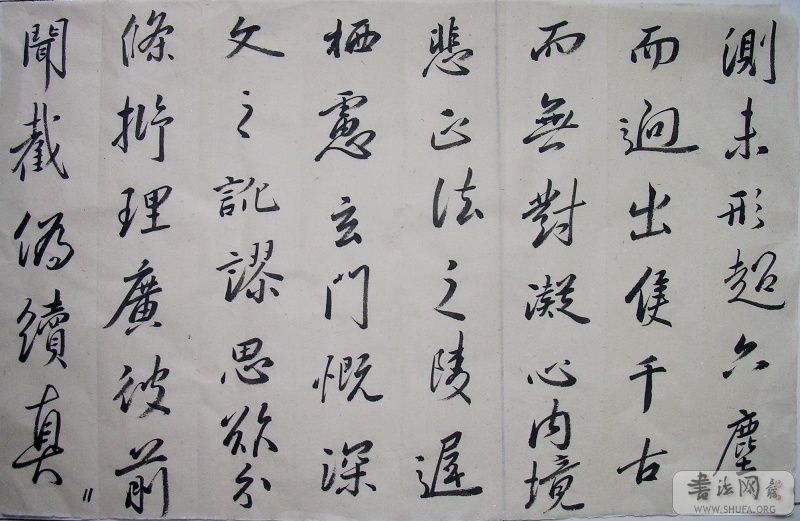 測未形超六塵
而迥出隻千古
而無對凝心內境
悲正法之陵遲
栖慮玄門慨深
文之訛謬思欲分
條析理廣彼前
聞截偽續真
书法网
WWW.SHUFA.ORG